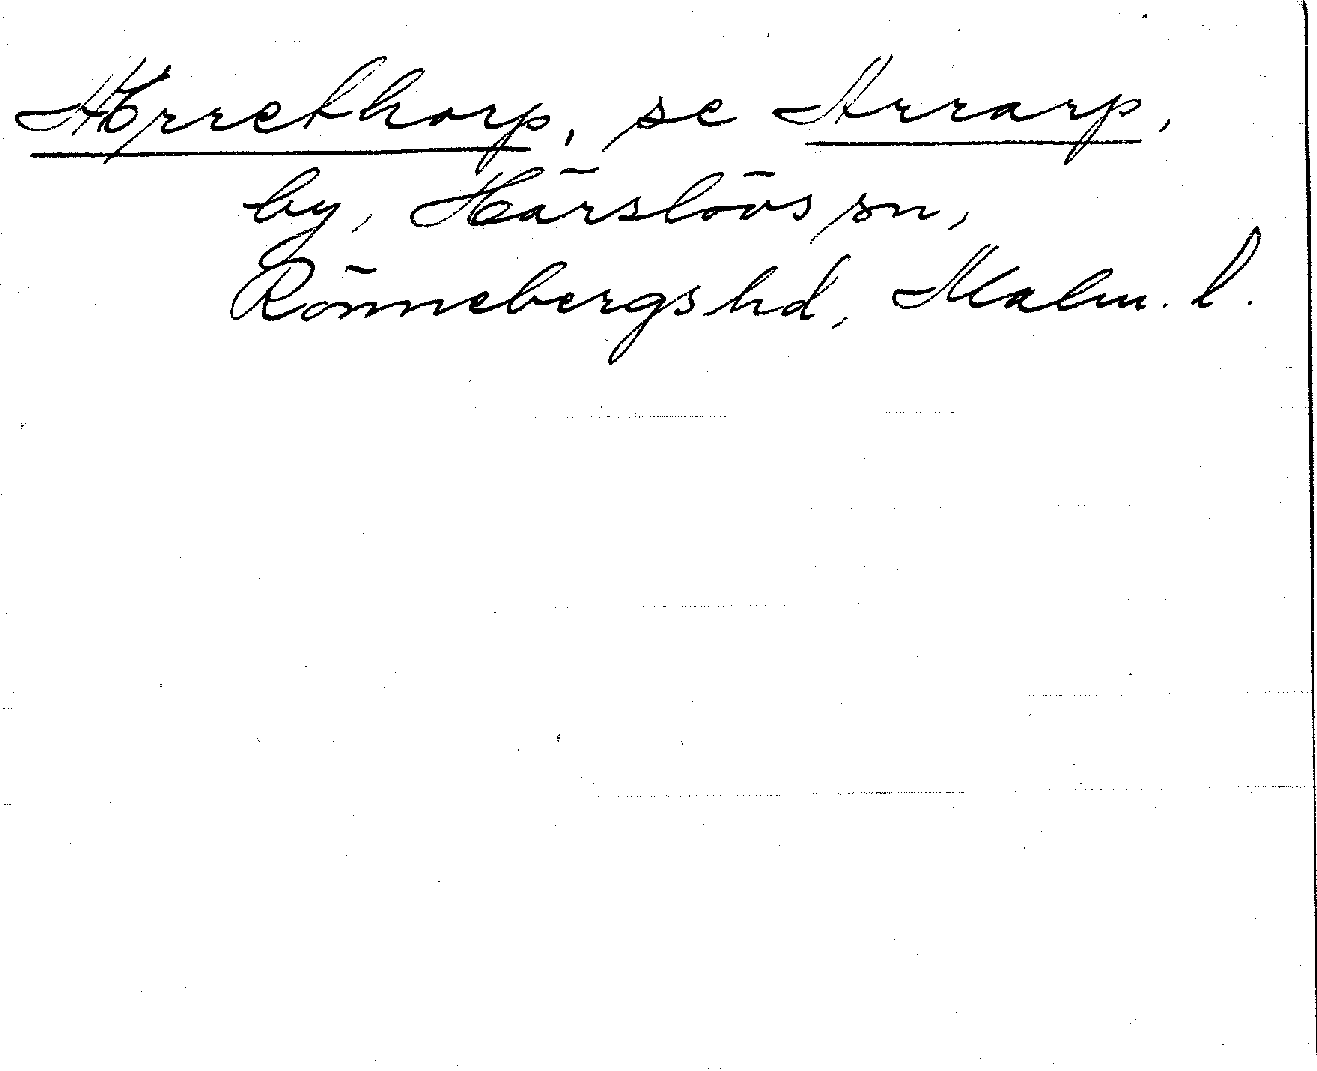 Ærrethorp, se Arrarp,
by, Härslövs sn,
Rönnebergs hd, Malm. l.